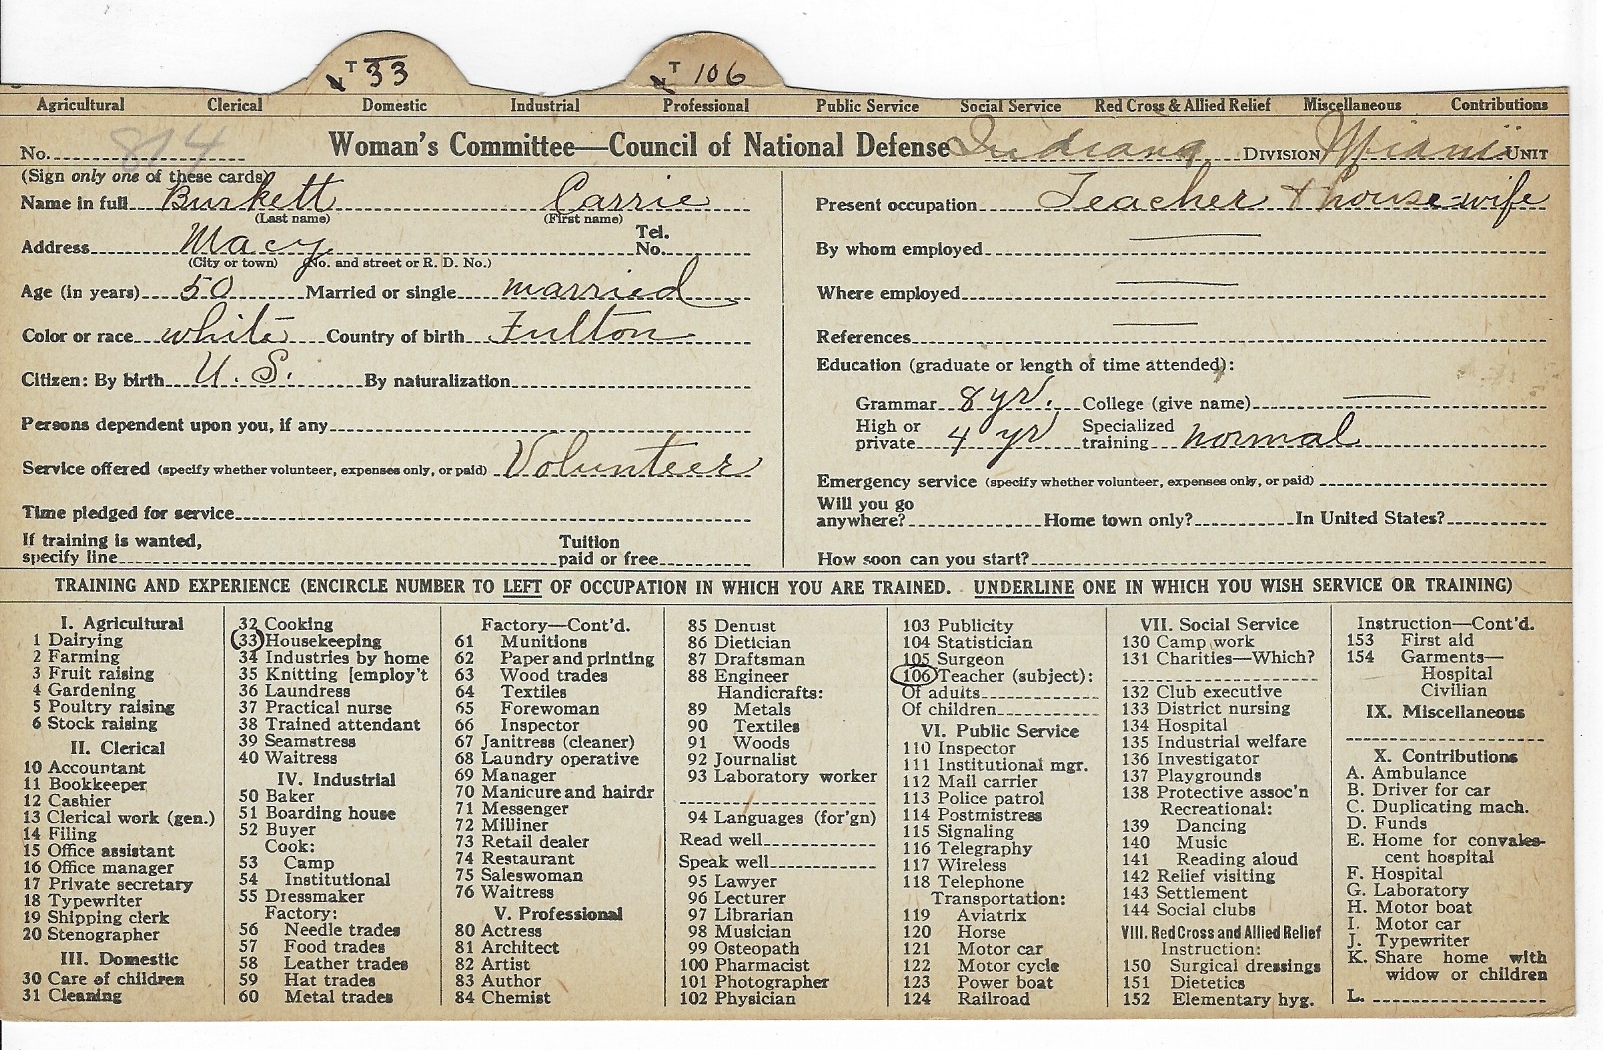 T 33 T 106
Agricultural Clerical Domestic Industrial Professional Public Service Social Service Red Cross & Allied Relief Miscellaneous Contributions
No. 814 Woman's Committee—Council of National Defense Indiana DIVISION Miami UNIT
(Sign only one of these cards)
Name in full Burkett Carrie
(Last name) (First name)
Address Macy Tel. No.
(City or town) (No. and street or R. D. No.)
Age (in years) 50 Married or single married
Color or race white Country of birth Fulton
Citizen: By birth U. S. By naturalization
Persons dependent upon you, if any
Service offered (specify whether volunteer, expenses only, or paid) Volunteer
Time pledged for service
If training is wanted, specify line Tuition paid or free
Present occupation Teacher & house-wife
By whom employed
Where employed
References
Education (graduate or length of time attended):
Grammar 8 yr. College (give name)
High or private 4 yr Specialized training normal
Emergency service (specify whether volunteer, expenses only, or paid)
Will you go anywhere? Home town only? In United States?
How soon can you start?
TRAINING AND EXPERIENCE (ENCIRCLE NUMBER TO LEFT OF OCCUPATION IN WHICH YOU ARE TRAINED. UNDERLINE ONE IN WHICH YOU WISH SERVICE OR TRAINING)
I. Agricultural
1 Dairying
2 Farming
3 Fruit raising
4 Gardening
5 Poultry raising
6 Stock raising
II. Clerical
10 Accountant
11 Bookkeeper
12 Cashier
13 Clerical work (gen.)
14 Filing
15 Office assistant
16 Office manager
17 Private secretary
18 Typewriter
19 Shipping clerk
20 Stenographer
III. Domestic
30 Care of children
31 Cleaning
32 Cooking
33 Housekeeping
34 Industries by home
35 Knitting [employ't
36 Laundress
37 Practical nurse
38 Trained attendant
39 Seamstress
40 Waitress
IV. Industrial
50 Baker
51 Boarding house
52 Buyer
Cook:
53 Camp
54 Institutional
55 Dressmaker
Factory:
56 Needle trades
57 Food trades
58 Leather trades
59 Hat trades
60 Metal trades
Factory—Cont'd.
61 Munitions
62 Paper and printing
63 Wood trades
64 Textiles
65 Forewoman
66 Inspector
67 Janitress (cleaner)
68 Laundry operative
69 Manager
70 Manicure and hairdr
71 Messenger
72 Milliner
73 Retail dealer
74 Restaurant
75 Saleswoman
76 Waitress
V. Professional
80 Actress
81 Architect
82 Artist
83 Author
84 Chemist
85 Dentist
86 Dietician
87 Draftsman
88 Engineer
Handicrafts:
89 Metals
90 Textiles
91 Woods
92 Journalist
93 Laboratory worker
94 Languages (for'gn)
Read well
Speak well
95 Lawyer
96 Lecturer
97 Librarian
98 Musician
99 Osteopath
100 Pharmacist
101 Photographer
102 Physician
103 Publicity
104 Statistician
105 Surgeon
106 Teacher (subject):
Of adults
Of children
VI. Public Service
110 Inspector
111 Institutional mgr.
112 Mail carrier
113 Police patrol
114 Postmistress
115 Signaling
116 Telegraphy
117 Wireless
118 Telephone
Transportation:
119 Aviatrix
120 Horse
121 Motor car
122 Motor cycle
123 Power boat
124 Railroad
VII. Social Service
130 Camp work
131 Charities—Which?
132 Club executive
133 District nursing
134 Hospital
135 Industrial welfare
136 Investigator
137 Playgrounds
138 Protective assoc'n
Recreational:
139 Dancing
140 Music
141 Reading aloud
142 Relief visiting
143 Settlement
144 Social clubs
VIII. Red Cross and Allied Relief
Instruction:
150 Surgical dressings
151 Dietetics
152 Elementary hyg.
Instruction—Cont'd.
153 First aid
154 Garments—
Hospital
Civilian
IX. Miscellaneous
X. Contributions
A. Ambulance
B. Driver for car
C. Duplicating mach.
D. Funds
E. Home for convales-
cent hospital
F. Hospital
G. Laboratory
H. Motor boat
I. Motor car
J. Typewriter
K. Share home with
widow or children
L.